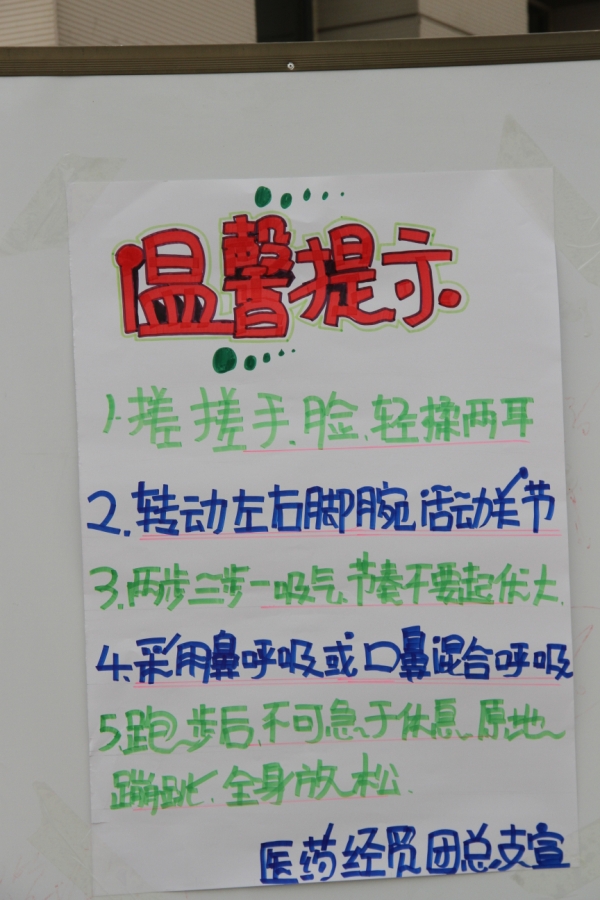 温馨提示
1.搓搓手、脸、轻揉两耳
2.转动左右脚腕活动关节
3.两步三步一吸气、节奏不要起伏大.
4.采用鼻呼吸或口鼻混合呼吸
5.跑步后、不可急于休息、原地
蹦跳、全身放松.
医药经贸团总支宣